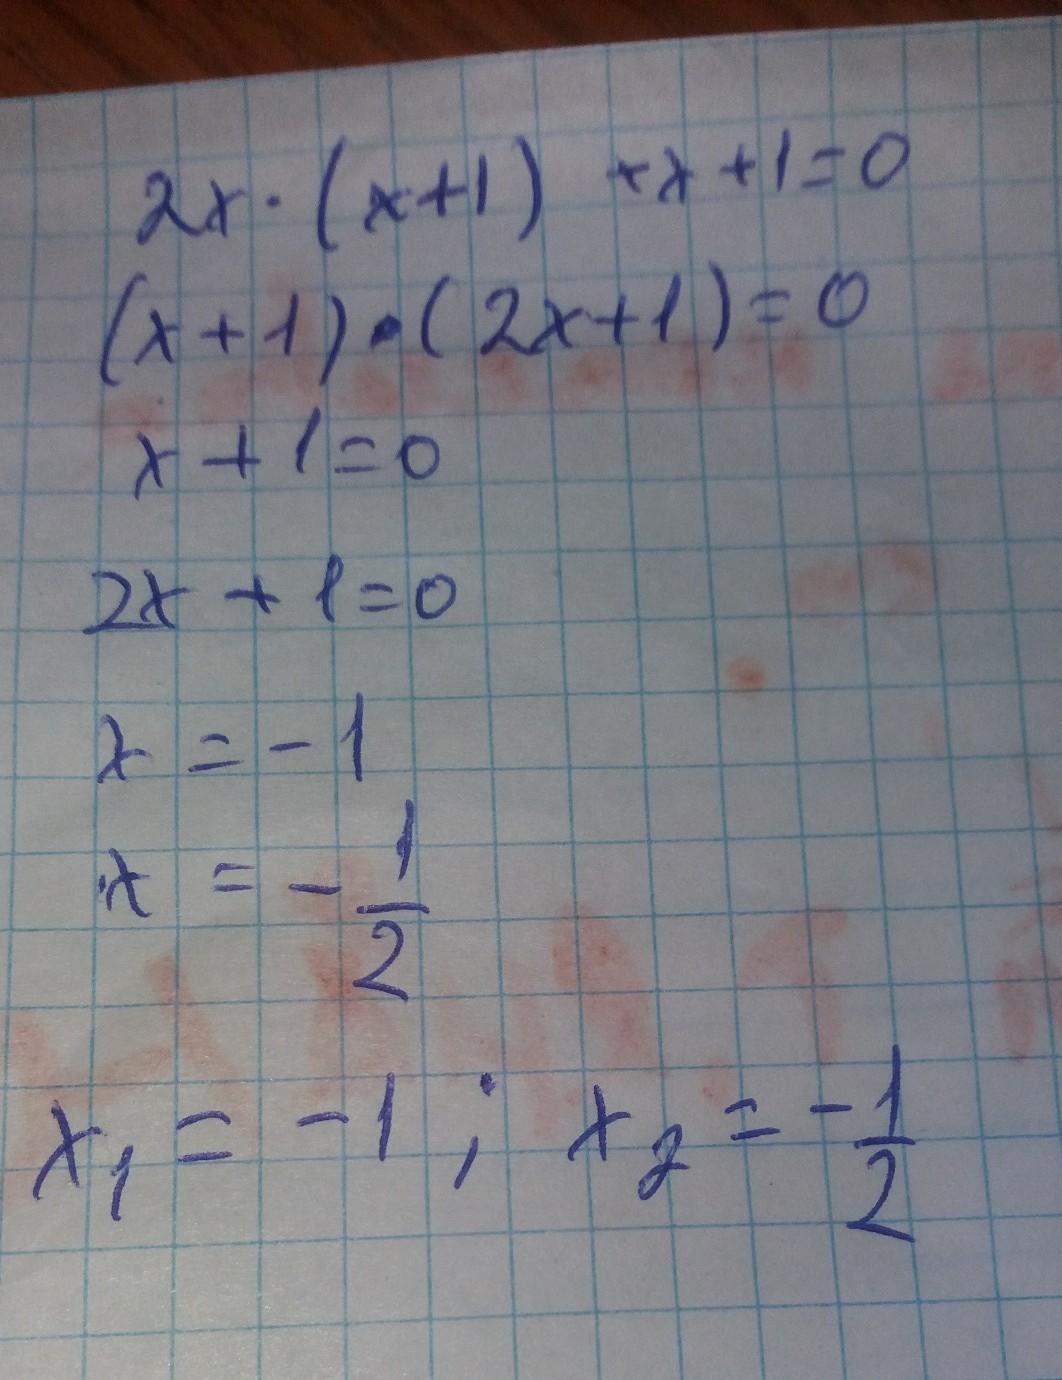 2x · (x+1) +x +1=0
(x+1)·(2x+1)=0
x+1=0
2x+1=0
x=-1
x=-1/2
x₁=-1; x₂=-1/2